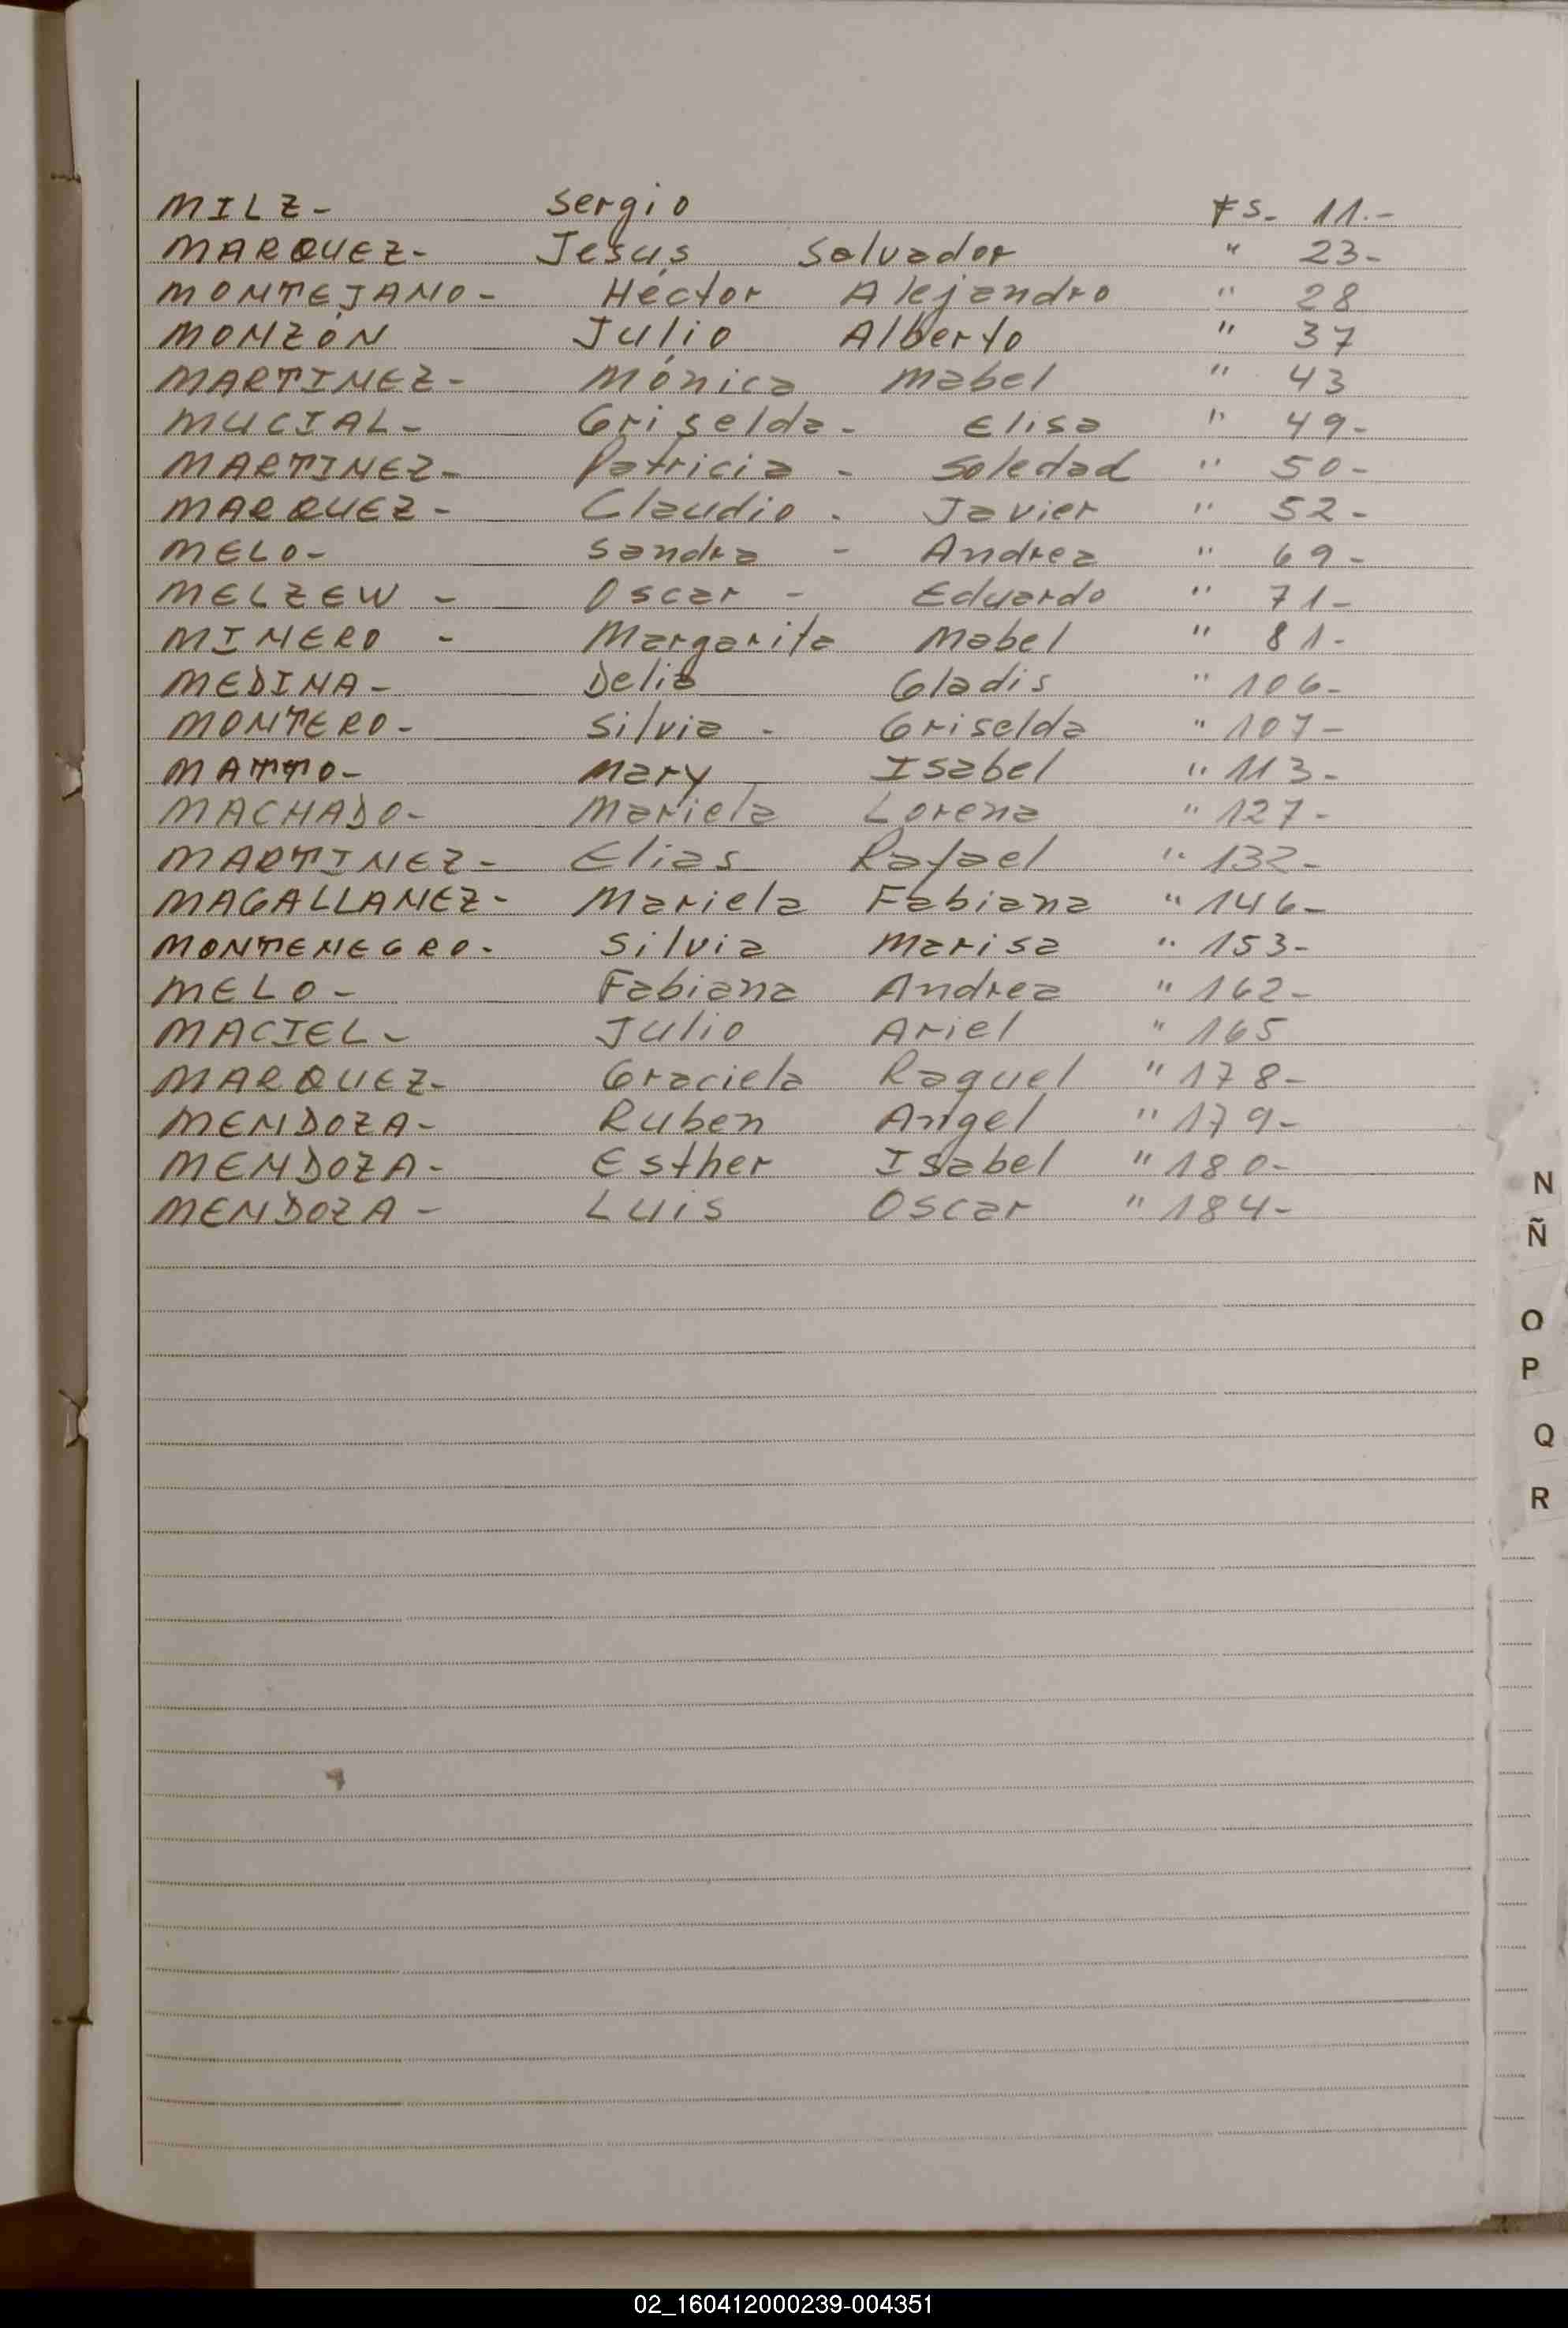 MILZ- Sergio FS- 11.-
MARQUEZ- Jesús Salvador " 23-
MONTEJANO- Héctor Alejandro " 28
MONZÓN Julio Alberto " 37
MARTINEZ- Mónica Mabel " 43
MUCIAL- Griselda- Elisa " 49-
MARTINEZ- Patricia - Soledad " 50-
MARQUEZ- Claudio - Javier " 52-
MELO- Sandra - Andrea " 69-
MELZEW - Oscar - Eduardo " 71-
MINERO - Margarita Mabel " 81-
MEDINA- Delia Gladis " 106-
MONTERO- Silvia - Griselda " 107-
MATTO- Mary Isabel " 113-
MACHADO- Mariela Lorena " 127-
MARTINEZ- Elias Rafael " 132-
MAGALLANEZ- Mariela Fabiana " 146-
MONTENEGRO- Silvia Marisa " 153-
MELO- Fabiana Andrea " 162-
MACIEL- Julio Ariel " 165
MARQUEZ- Graciela Raquel " 178-
MENDOZA- Ruben Angel " 179-
MENDOZA- Esther Isabel " 180-
MENDOZA- Luis Oscar " 184-
N
Ñ
O
P
Q
R
02_160412000239-004351